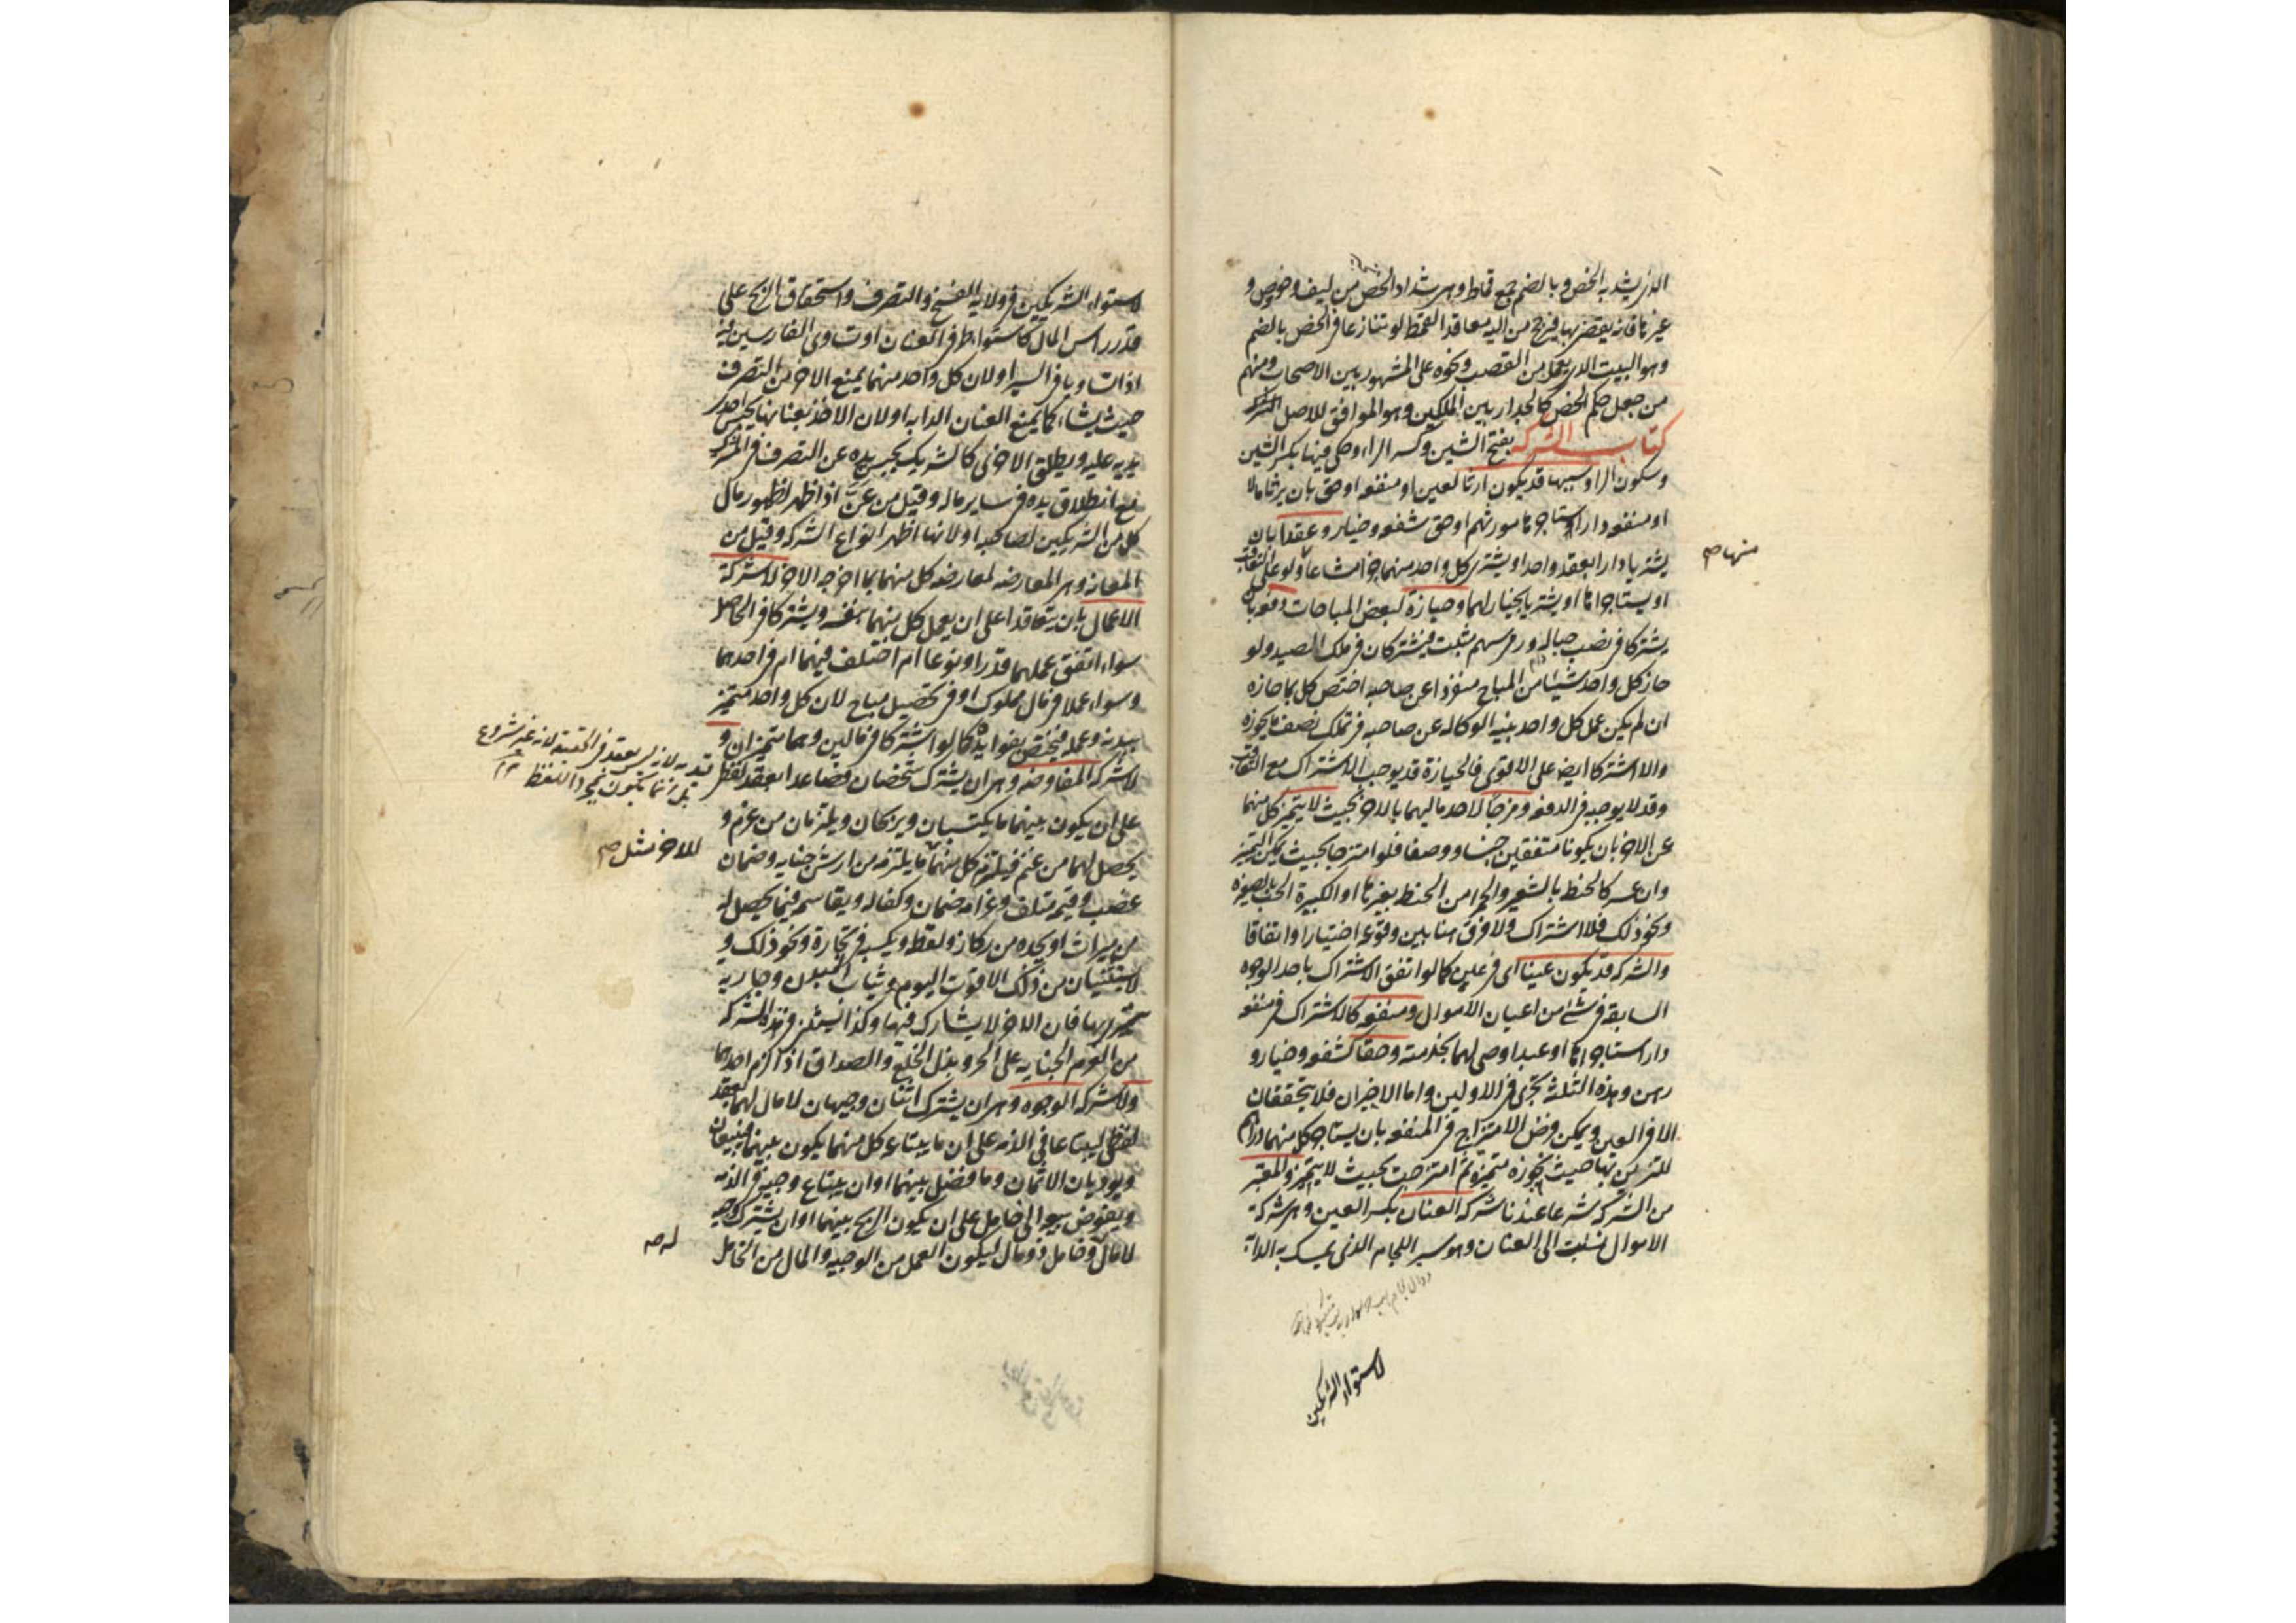 الذي يشد به الخص وبالضم جمع قماط وهي شداد الخص من ليف وخوص و
غيرهما فانه يقضى بها فيرجح من اليه معاقد القمط لو تنازعا في الخص بالضم
وهو البيت الذي يعمل من القصب ونحوه على المشهور بين الاصحاب ومنهم
من جعل حكم الخص كالجدار بين الملكين وهو الموافق للاصل
كتاب الشركة بفتح الشين وكسر الراء وحكي فيها بكسر الشين
وسكون الراء وسببها قد يكون ارثا لعين او منفعه او حق بان يرثا مالا
او منفعه دار استاجرها مورثهم او حق شفعه وخيار وعقدا بان
يشتريا دارا بعقد واحد او يشتري كل واحد منهما جزءا مشاعا ولو على التعاقب
منها صح
او يستاجراها او يشتريا بخيار لهما وحيازة لبعض المباحات دفعه بان
يشتركا في نصب حباله ورمي سهم مثبت فيشتركان في ملك الصيد ولو
حاز كل واحد شيئا من المباح منفردا عن صاحبه اختص كل بما حازه
ان لم يكن عمل كل واحد بنية الوكاله عن صاحبه في تملك نصف ما يحوزه
والا اشتركا ايضا على الاقوى فالحيازة قد يوجب الاشتراك مع التعاقب
وقد لا يوجبه في الدفعه ومزجا لاحد ماليهما بالاخر بحيث لا يتميز كل منهما
عن الاخر بان يكونا متفقين جنسا ووصفا فلو امتزجا بحيث يمكن التمييز
وان عسر كالحنطه بالشعير والحمراء من الحنطه بغيرها او الكبيرة الحب بالصغيره
ونحو ذلك فلا اشتراك ولا فرق هنا بين وقوعه اختيارا واتفاقا
والشركه قد يكون عينا اي في عين كما لو اتفق الاشتراك باحد الوجوه
السابقه في شيء من اعيان الاموال ومنفعه كالاشتراك في منفعه
دار استاجراها او عبد اوصي لهما بخدمته وحقا كشفعه وخيار و
رهن وهذه الثلثه تجري في الاولين واما الاخيران فلا يتحققان
الا في العين ويمكن فرض الامتزاج في المنفعه بان يستاجر كل منهما دراهم
للتزين بها حيث يجوزه متميزه ثم امتزجت بحيث لا يتميز والمعتبر
من الشركه شرعا عندنا شركه العنان بكسر العين وهي شركة
الاموال نسبت الى العنان وهو سير اللجام الذي يمسك به الدابة
لاستواء الشريكين
لاستواء الشريكين في ولايه الفسخ والتصرف واستحقاق الربح على
قدر راس المال كاستواء طرفي العنان او تساوي الفارسين فيه
اذا تساويا في السير او لان كل واحد منهما يمنع الاخر من التصرف
حيث يشاء كما يمنع العنان الدابه او لان الاخذ بعنانها يحبس احدى
يديه عليه ويطلق الاخرى كالشريك يحبس يده عن التصرف في المشترك
مع انطلاق يده في ساير ماله وقيل من عن اذا ظهر لظهور مال
كل من الشريكين لصاحبه او لانها اظهر انواع الشركه وقيل من
المعانه وهي المعارضه لمعارضه كل منهما بما اخرجه الاخر لا شركة
الاعمال بان يتعاقدا على ان يعمل كل منهما بنفسه ويشتركا في الحاصل
سواء اتفق عملهما قدرا ونوعا ام اختلف فيهما ام في احدهما
وسواء عملا في مال مملوك او في تحصيل مباح لان كل واحد متميز
ببدنه وعمله فيختص بفوايده كما لو اشتركا في مالين وهما متميزان و
لا شركه المفاوضه وهي ان يشترك شخصان فصاعدا بعقد لفظي
على ان يكون بينهما ما يكتسبان ويربحان ويلتزمان من غرم و
يحصل لهما من غنم فيلتزم كل منهما ما يلتزمه من ارش جنايه وضمان
للاخر مثل صح
غصب وقيمه متلف وغرامه ضمان وكفاله ويقاسمه فيما يحصل له
من ميراث او يجده من ركاز ولقطه ويكسبه في تجارة ونحو ذلك و
لا يستثنيان من ذلك الا قوت اليوم وثياب البدن وجاريه
يتسرى بها فان الاخر لا يشارك فيها وكذا يستثنى في هذه الشركه
من الغرم الجنايه على الحر وبذل الخلع والصداق اذا لزم احدهما
ولا شركه الوجوه وهي ان يشترك اثنان وجيهان لا مال لهما بعقد
لفظي ليبتاعا في الذمه على ان ما يبتاعه كل منهما يكون بينهما فيبيعان
ويؤديان الاثمان وما فضل بينهما او ان يبتاع وجيه في الذمه
ويفوض بيعه الى خامل على ان يكون الربح بينهما او ان يشترك وجيه
لا مال له وخامل ذو مال ليكون العمل من الوجيه والمال من الخامل
له صح